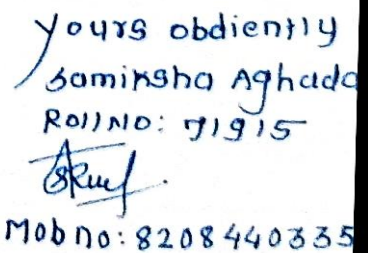 yours obdiently
Samiksha Aghada
Roll No: 71915
Mob no: 8208440335